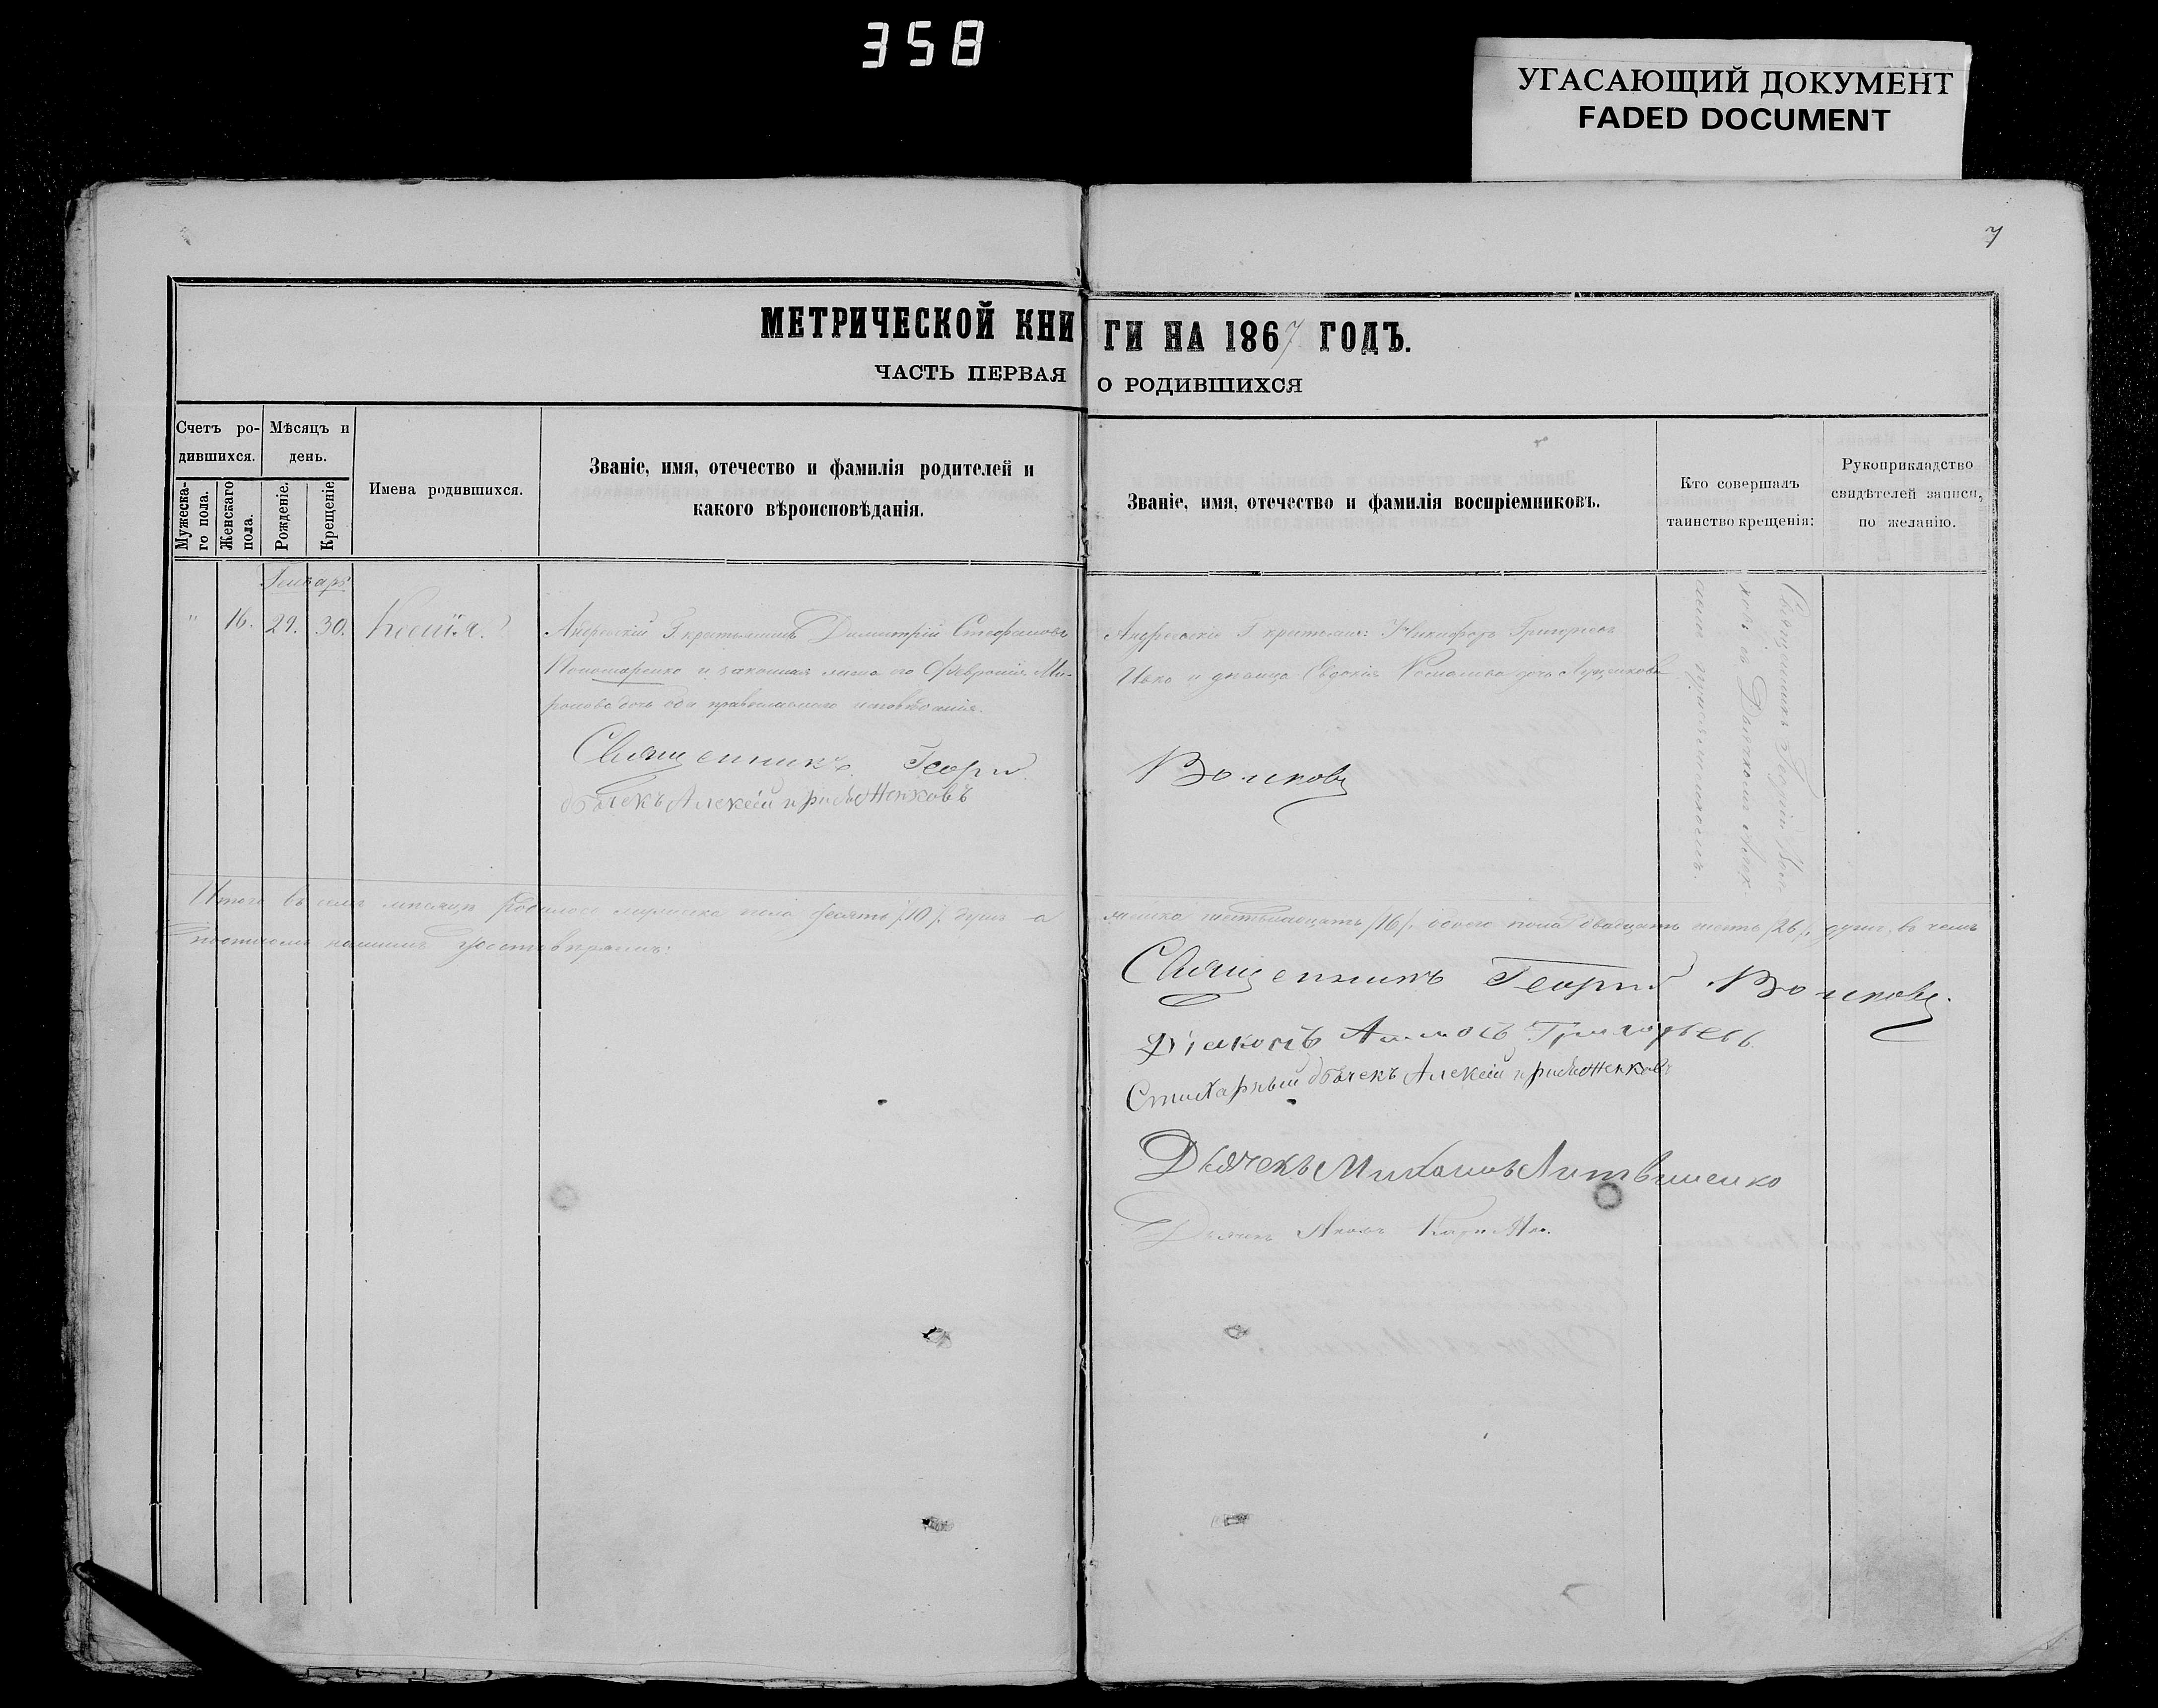 358
УГАСАЮЩИЙ ДОКУМЕНТ
FADED DOCUMENT
7
МЕТРИЧЕСКОЙ КНИГИ НА 1867 ГОДЪ.
ЧАСТЬ ПЕРВАЯ О РОДИВШИХСЯ
Счетъ ро-
дившихся.
Мужеска-
го пола.
Женскаго
пола.
Мѣсяцъ и
день.
Рожденіе.
Крещеніе
Имена родившихся.
Званіе, имя, отечество и фамилія родителей и
какого вѣроисповѣданія.
Званіе, имя, отечество и фамилія воспріемниковъ.
Кто совершалъ
таинство крещенія:
Рукоприкладство
свидѣтелей записи,
по желанію.
Генварь
" 16. 29. 30. Ксенія.
крестьянинъ Димитрій Стефановъ
Пономаренко и законная жена его Феврония Ми-
ронова дочь оба православнаго исповѣданія.
Священникъ Георгій
дьячекъ Алексій
крестьяне: Никифоръ Григорьевъ
и девица Евдокія дочь
Волковъ
Священникъ Георгій Вол-
ковъ съ Дьячкомъ
Итого въ семъ месяце родилось мужеска пола десять /10/. душъ а
женска шестьнадцать /16/. обоего пола двадцать шесть /26/. душъ, въ чемъ
Священникъ Георгій Волковъ.
Діаконъ Григорьевъ
Стихарный дьячекъ Алексій
Дьячекъ Михаилъ Литвиненко